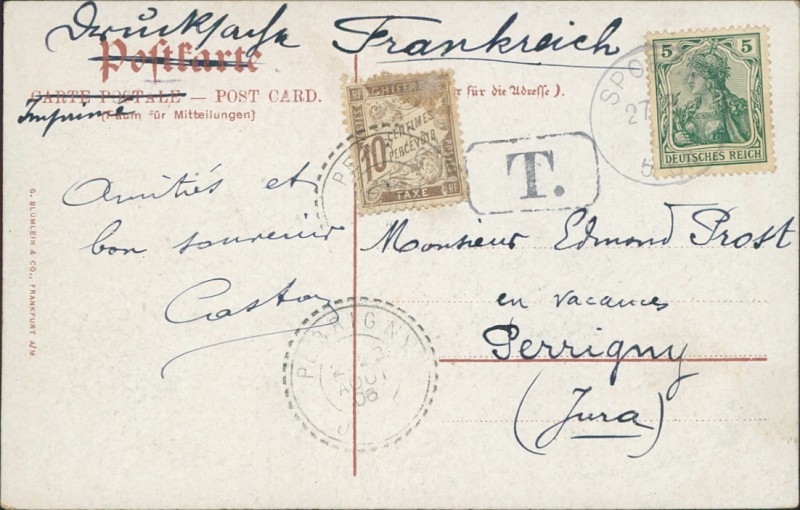 Drucksache Frankreich
Postkarte
CARTE POSTALE — POST CARD.
Imprimé
(Raum für Mitteilungen)
für die Adresse).
RF CHIFFRE
10 CENTIMES
A PERCEVOIR
TAXE RF
T.
SPO
27
5
5 5
DEUTSCHES REICH
Amitiés et
bon souvenir
Gaston
Monsieur Edmond Prost
en vacances
Perrigny
(Jura)
PERRIGNY
AOUT
06
G. BLÜMLEIN & CO., FRANKFURT A/M.